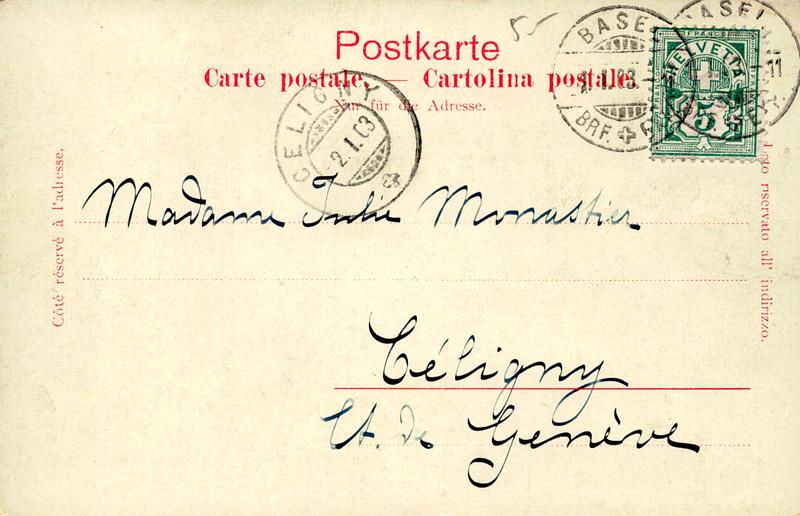 55
Postkarte
Carte postale. — Cartolina postale.
Nur für die Adresse.
BASEL
BRF.
BASEL
11
FRANCO
HELVETIA
5
CELIGNY
-2.I.03
Côté réservé à l'adresse.
Lato riservato all' indirizzo.
Madame Julie Monastier
Céligny
Ct. de Genève